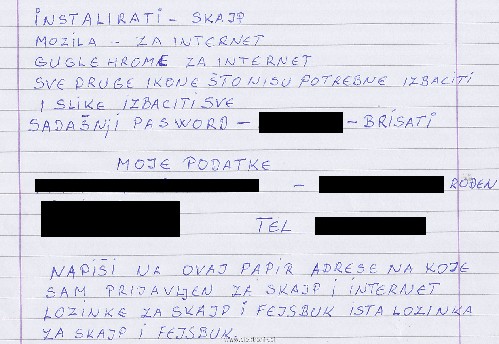 INSTALIRATI - SKAJP
MOZILA - ZA INTERNET
GUGLE HROME ZA INTERNET
SVE DRUGE IKONE ŠTO NISU POTREBNE IZBACITI
I SLIKE IZBACITI SVE
SADAŠNJI PASWORD - - BRISATI
MOJE PODATKE
- ROĐEN
TEL
NAPIŠI NA OVAJ PAPIR ADRESE NA KOJE
SAM PRIJAVLJEN ZA SKAJP I INTERNET
LOZINKE ZA SKAJP I FEJSBUK ISTA LOZINKA
ZA SKAJP I FEJSBUK